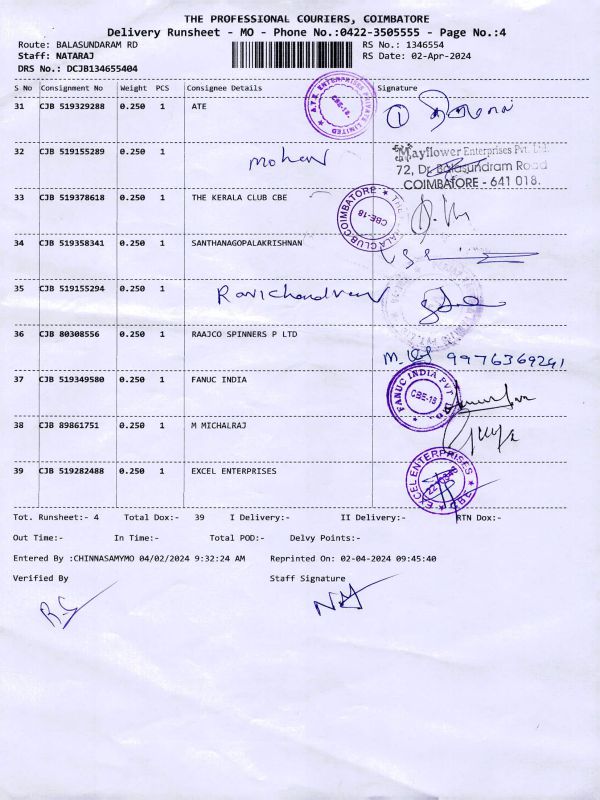 THE PROFESSIONAL COURIERS, COIMBATORE
Delivery Runsheet - MO - Phone No.:0422-3505555 - Page No.:4
Route: BALASUNDARAM RD RS No.: 1346554
Staff: NATARAJ RS Date: 02-Apr-2024
DRS No.: DCJB134655404
S No Consignment No Weight PCS Consignee Details Signature
31 CJB 519329288 0.250 1 ATE
A.T.E. ENTERPRISES PRIVATE LIMITED
CBE-18.
1
32 CJB 519155289 0.250 1 Mohan
Mayflower Enterprises Pvt. Ltd.
72, Dr. Balasundram Road
COIMBATORE - 641 018.
33 CJB 519378618 0.250 1 THE KERALA CLUB CBE
THE KERALA CLUB COIMBATORE
CBE-18
34 CJB 519358341 0.250 1 SANTHANAGOPALAKRISHNAN
35 CJB 519155294 0.250 1 Ravichandran
36 CJB 80308556 0.250 1 RAAJCO SPINNERS P LTD
9976369241
37 CJB 519349580 0.250 1 FANUC INDIA
FANUC INDIA PVT. LTD.
CBE-18
38 CJB 89861751 0.250 1 M MICHALRAJ
39 CJB 519282488 0.250 1 EXCEL ENTERPRISES
EXCEL ENTERPRISES
Tot. Runsheet:- 4 Total Dox:- 39 I Delivery:- II Delivery:- RTN Dox:-
Out Time:- In Time:- Total POD:- Delvy Points:-
Entered By :CHINNASAMYMO 04/02/2024 9:32:24 AM Reprinted On: 02-04-2024 09:45:40
Verified By Staff Signature